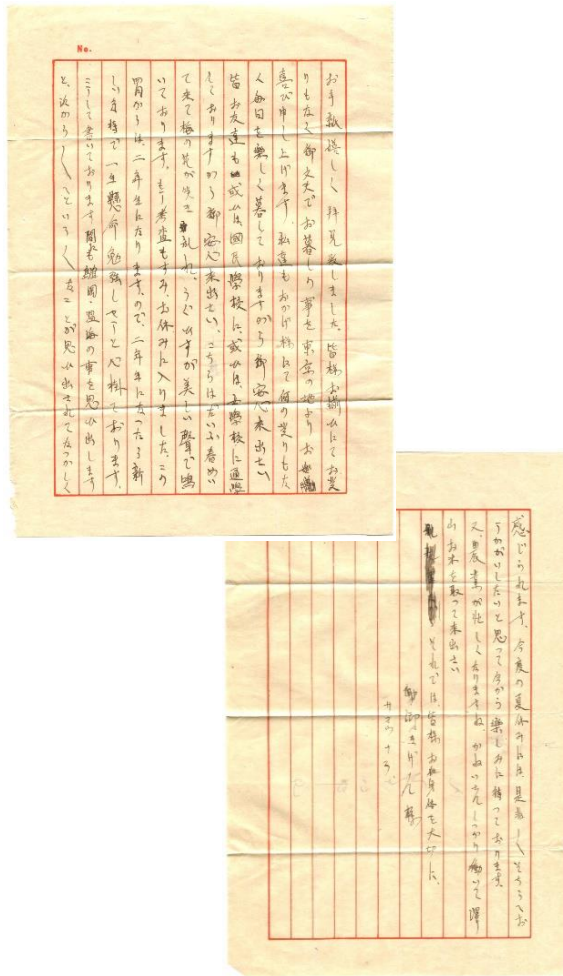 No.
お手紙嬉しく拝見致しました。皆様お揃ひにてお変
りもなく御丈夫でお暮しの事を東京の地よりお
喜び申し上げます。私達もおかげ様にて何の変りもな
く毎日を楽しく暮しておりますから御安心下さい
皆お友達も或ひは國民學校に、或ひは女學校に通學
しておりますから御安心下さい。こちらはだいぶ春めい
て来て梅の花が咲き乱れ、うぐひすが美しい聲で鳴
いております。もう考査もすみ、お休みに入りました。この
四月からは、二年生になります。ので、二年生になったら新
しい気持で一生懸命勉強しやうと心掛ております。
こうして書いております間にも 事を思ひ出します
と、次から〱へといろ〱なことが思ひ出されてなつかしく
感じられます。今度の夏休みには、是非〱そちらでお
うかがいしたいと思って今から楽しみに待っております。
又、農業が忙しくなりますね。 しっかり働いて澤
山お米を取って下さい
それでは、皆様お身体を大切に、
ごきげん様
さようなら、